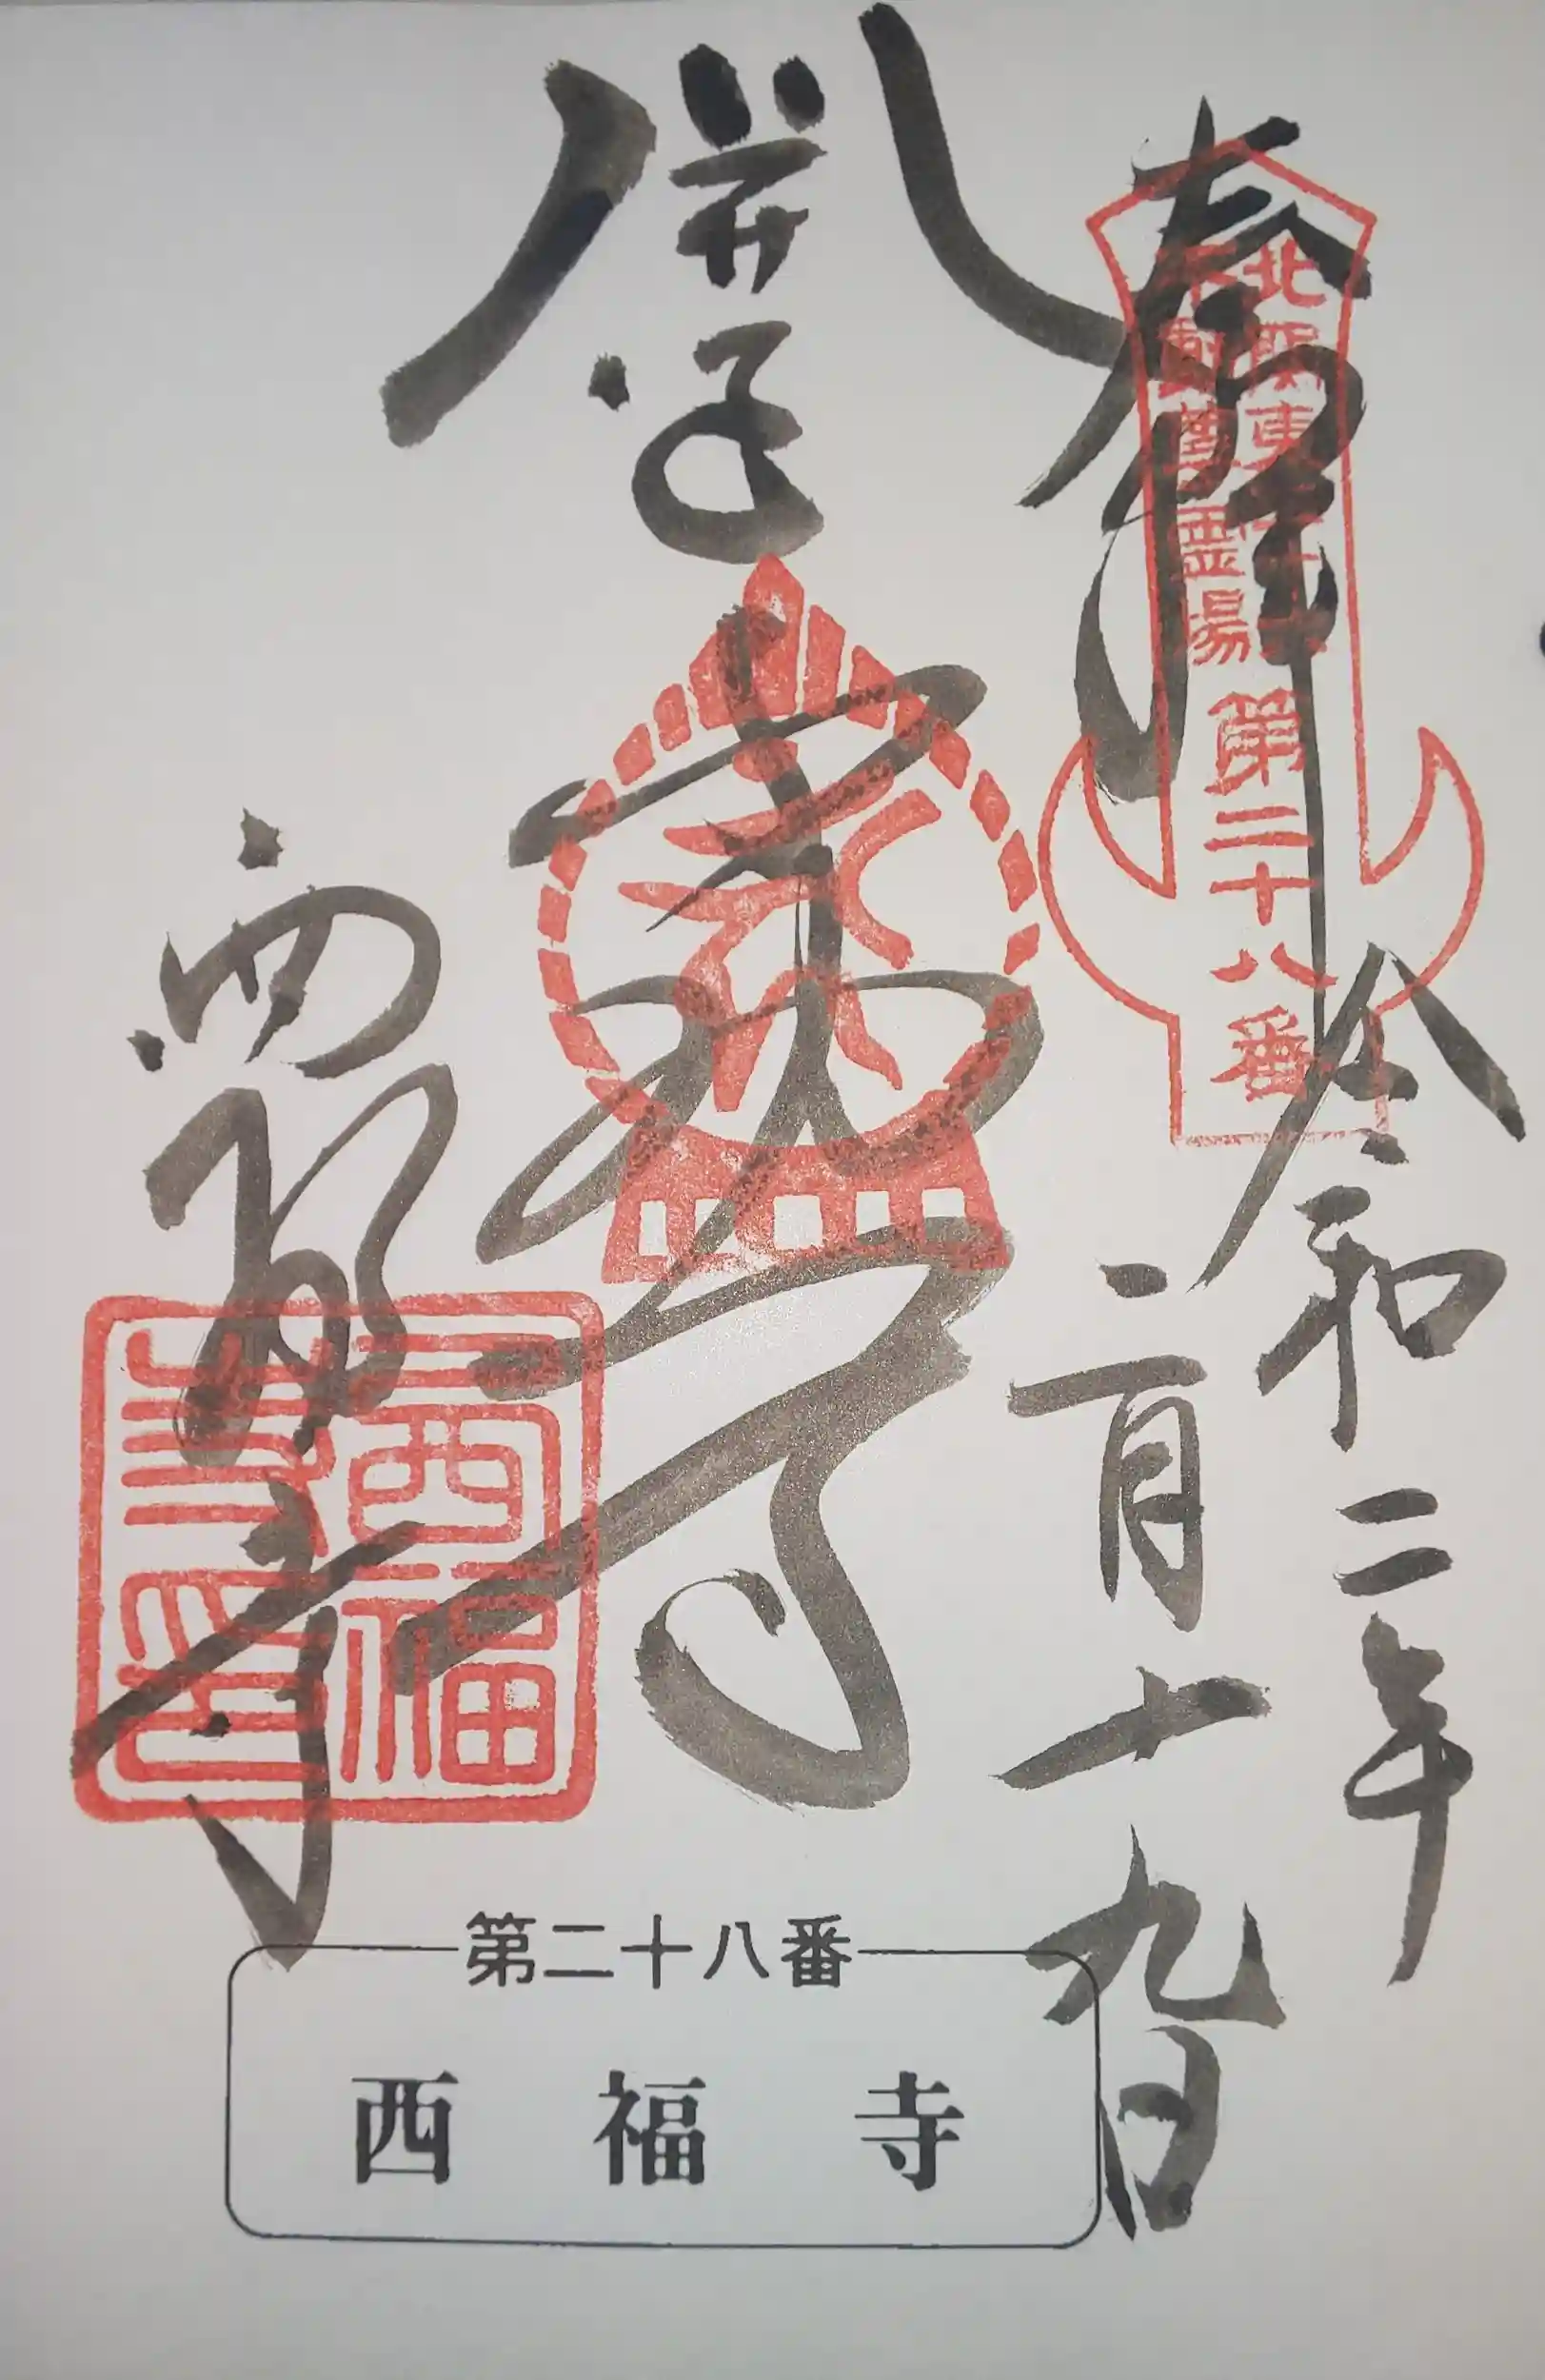 奉拝
令和二年
二月十九日
北関東三十六
不動尊霊場
第二十八番
西福寺
西福
寺印
第二十八番
西福寺